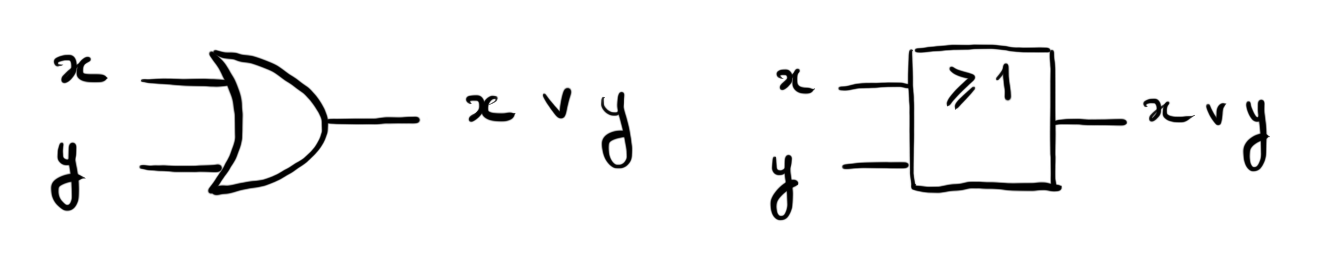 x
y
x ∨ y
x
y
⩾ 1
x ∨ y